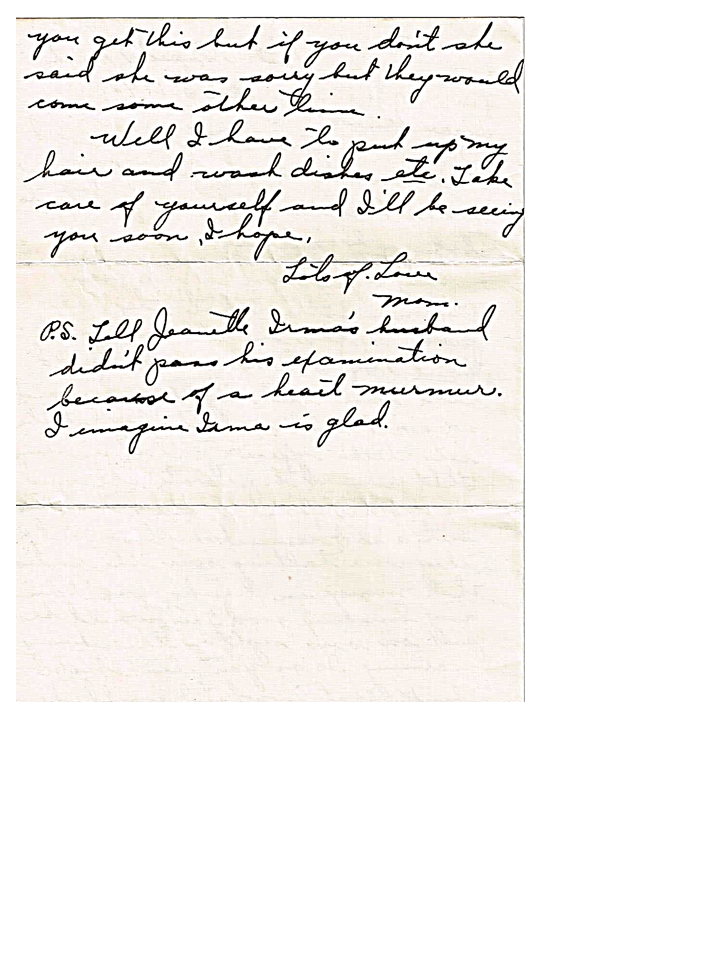 you get this but if you don't she
said she was sorry but they would
come some other time.
Well I have to put up my
hair and wash dishes etc. Take
care of yourself and I'll be seeing
you soon, I hope.
Lots of Love
Mom.
P.S. Tell Jeanette Irma's husband
didn't pass his examination
because of a heart murmur.
I imagine Irma is glad.